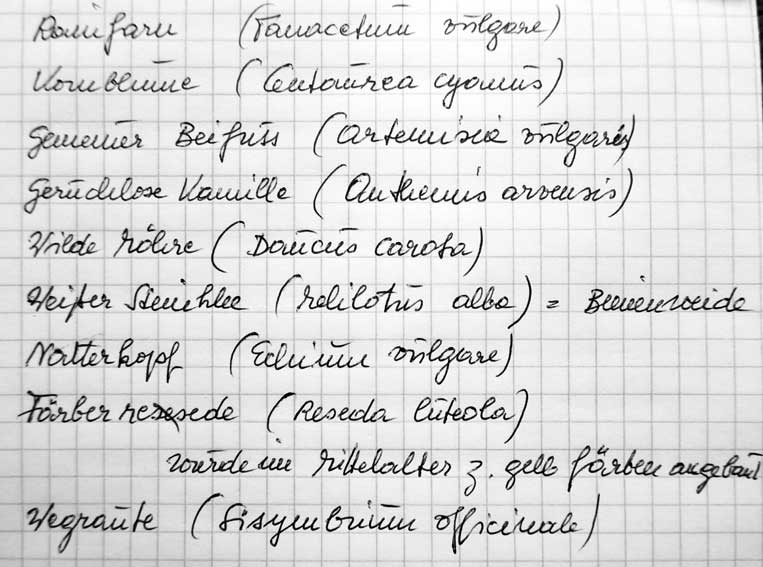 Rainfarn (Tanacetum vulgare)
Kornblume (Centaurea cyanus)
Gemeiner Beifuss (Artemisia vulgaris)
Geruchlose Kamille (Anthemis arvensis)
Wilde Möhre (Daucus carota)
Weißer Steinklee (Melilotus alba) = Bienenweide
Natterkopf (Echium vulgare)
Färberresede (Reseda luteola)
wurde im Mittelalter z. gelb färben angebaut
Wegraute (Sisymbrium officinale)